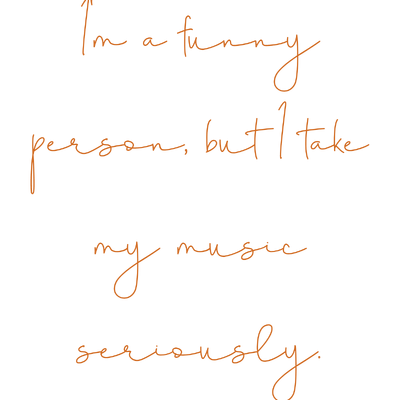 I'm a funny
person, but I take
my music
seriously.